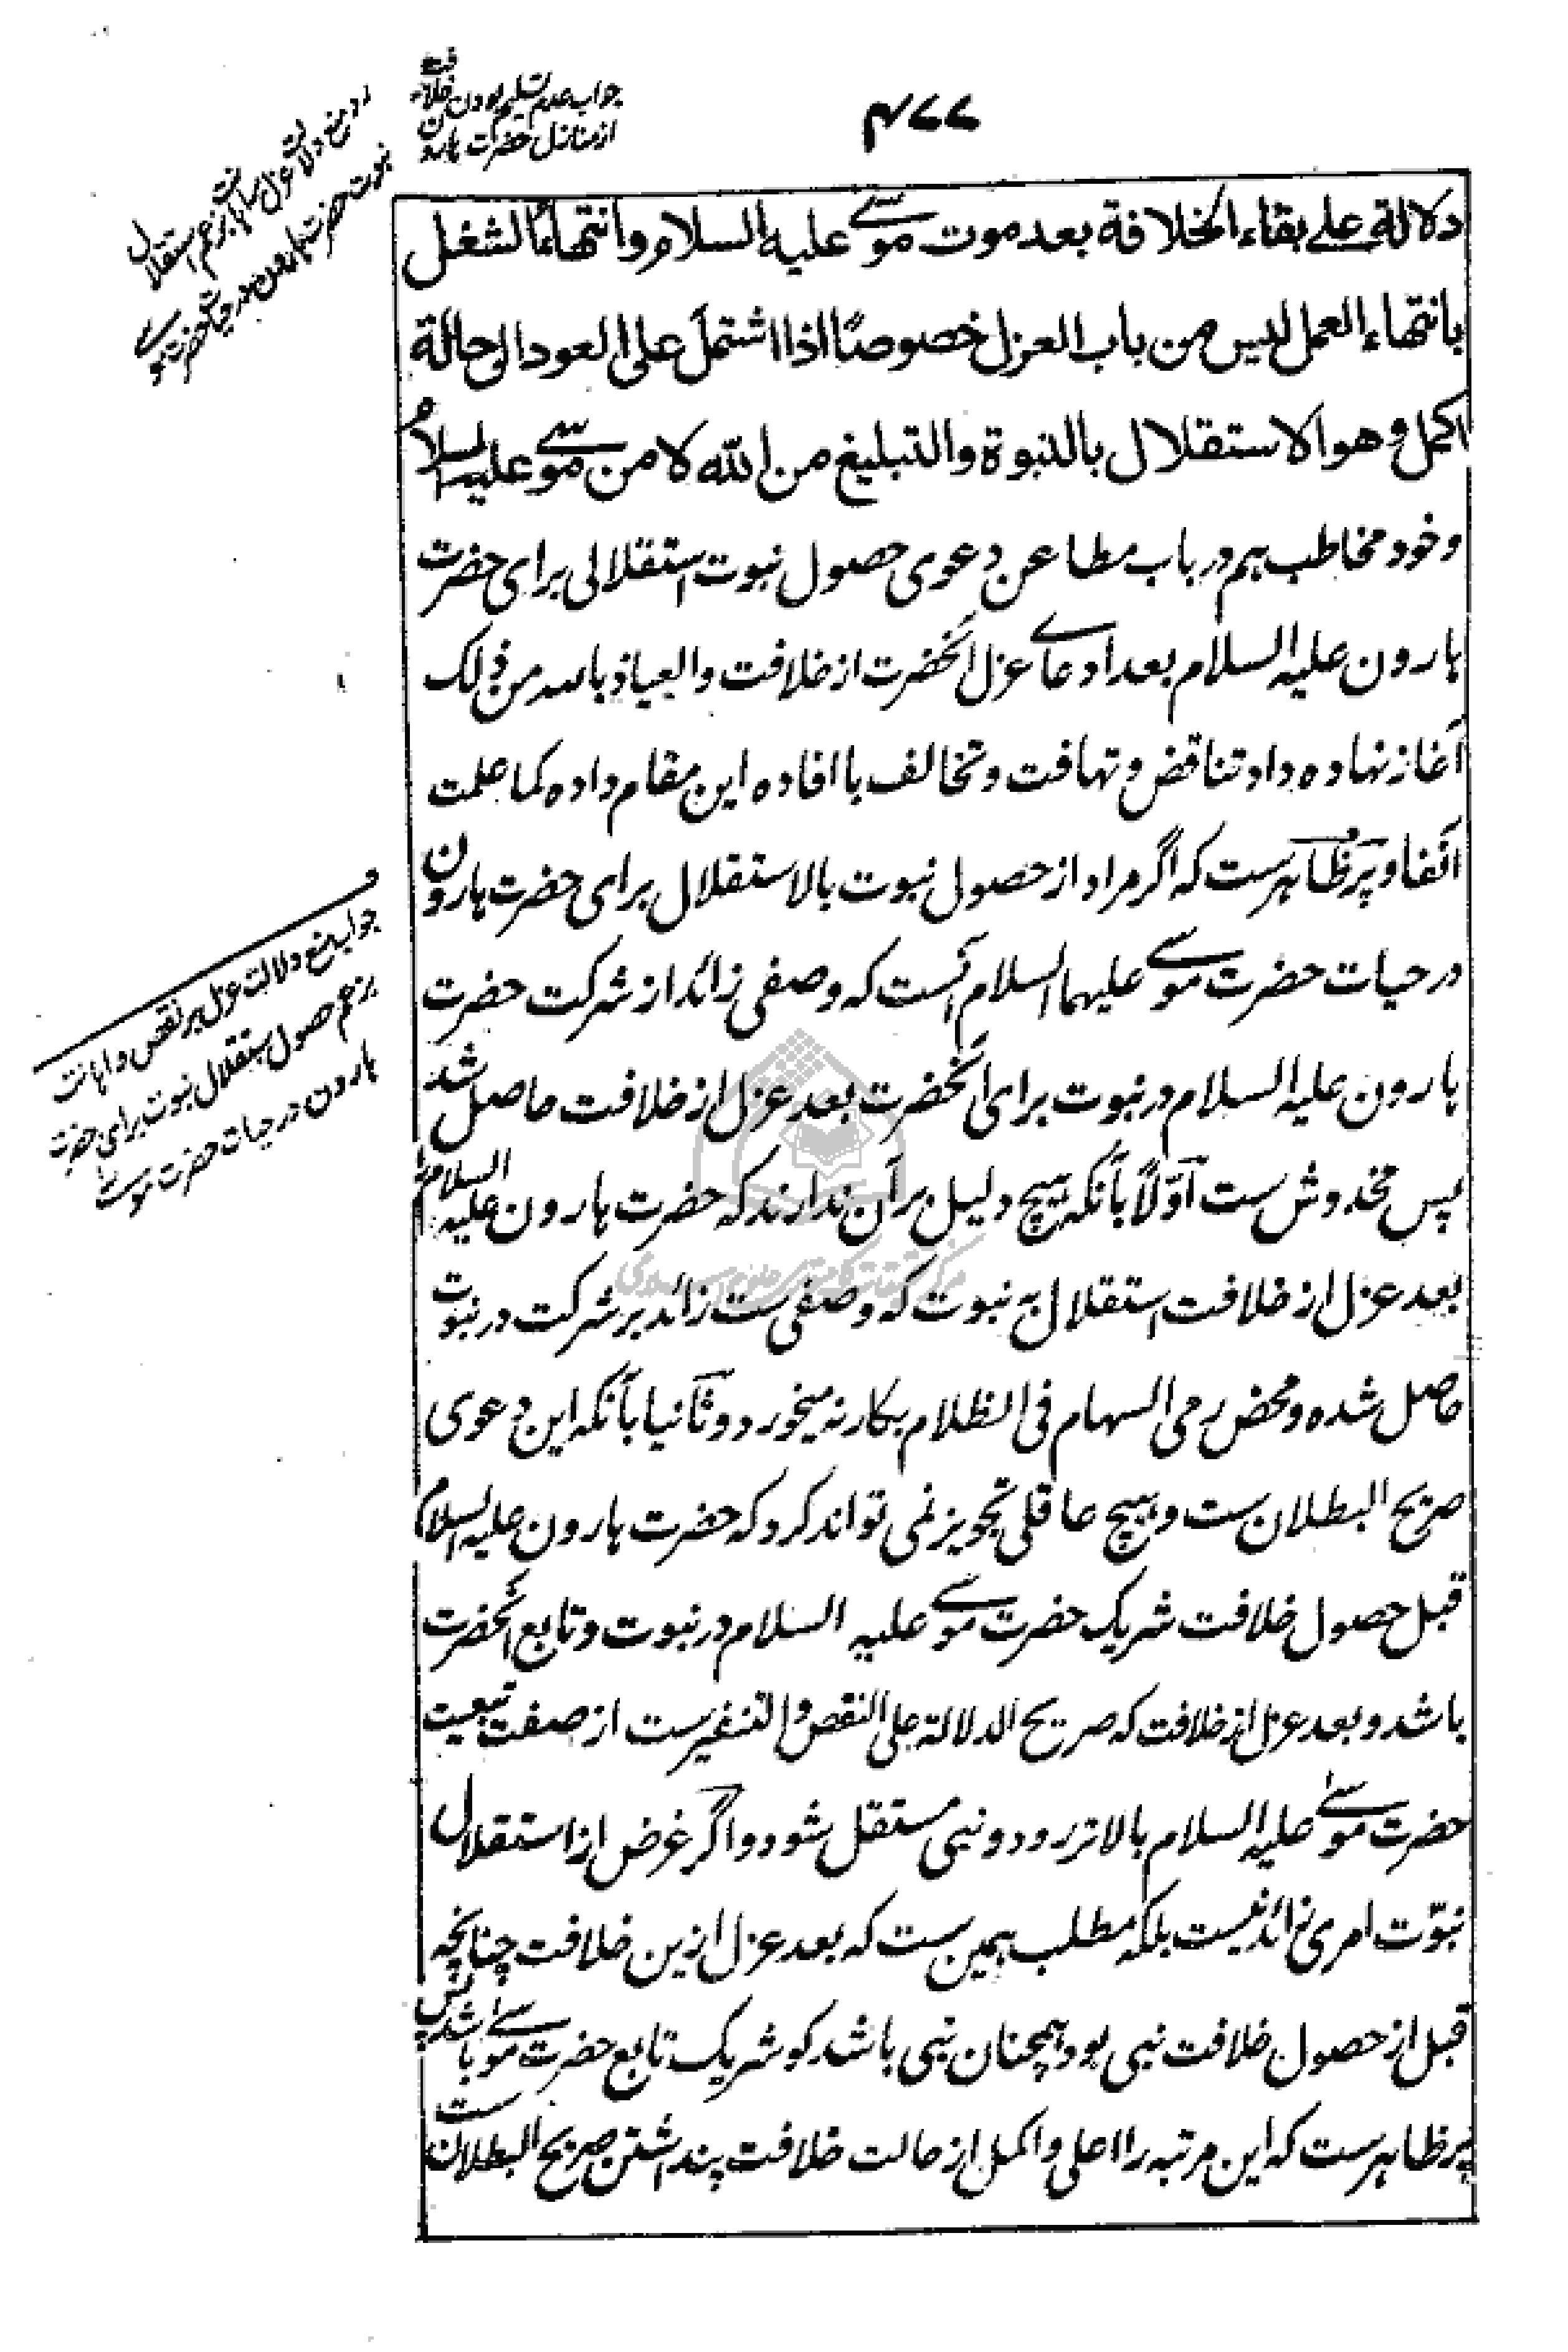 ۴۷۷
جواب عدم تسلیم بودن خلافت
از منازل حضرت هارون
رد منع دلالت عزل بر اهانت بزعم استقلال
نبوت حضرت هارون در حیات حضرت موسی
دلالة علی بقاء الخلافة بعد موت موسی علیه السلام وانتهاء الشغل
بانتهاء العمل لیس من باب العزل خصوصًا اذا اشتمل علی العود الی حالة
اکمل وهو الاستقلال بالنبوة والتبلیغ من الله لا من موسی علیه السلام
و خود مخاطب هم در باب مطاعن دعوی حصول نبوت استقلالی برای حضرت
هارون علیه السلام بعد ادعای عزل آنحضرت از خلافت والعیاذ بالله من ذلک
آغاز نهاده داد تناقض و تهافت و تخالف با افاده این مقام داده کما علمت
آنفا و پر ظاهرست که اگر مراد از حصول نبوت بالاستقلال برای حضرت هارون
در حیات حضرت موسی علیهما السلام آنست که وصفی زائد از شرکت حضرت
هارون علیه السلام در نبوت برای آنحضرت بعد عزل از خلافت حاصل شد
پس مخدوش ست اوّلاً بآنکه هیچ دلیل بر آن ندارند که حضرت هارون علیه السلام
بعد عزل از خلافت استقلال به نبوت که وصفی ست زائد بر شرکت در نبوت
حاصل شده و محض رمی السهام فی الظلام بکار نمیخورد و ثانیا بآنکه این دعوی
صریح البطلان ست و هیچ عاقلی تجویز نمی تواند کرد که حضرت هارون علیه السلام
قبل حصول خلافت شریک حضرت موسی علیه السلام در نبوت و تابع آنحضرت
باشد و بعد عزل از خلافت که صریح الدلالة علی النقص والتنفیرست از صفت تبعیت
حضرت موسی علیه السلام بالاتر رود و نبی مستقل شود و اگر غرض از استقلال
نبوّت امری زائد نیست بلکه مطلب همین ست که بعد عزل ازین خلافت چنانچه
قبل از حصول خلافت نبی بود همچنان نبی باشد کو شریک تابع حضرت موسی باشد پس
پر ظاهرست که این مرتبه را اعلی و اکمل از حالت خلافت پنداشتن صریح البطلان ست
جواب منع دلالت عزل بر نقص و اهانت
بزعم حصول استقلال نبوت برای حضرت
هارون در حیات حضرت موسی